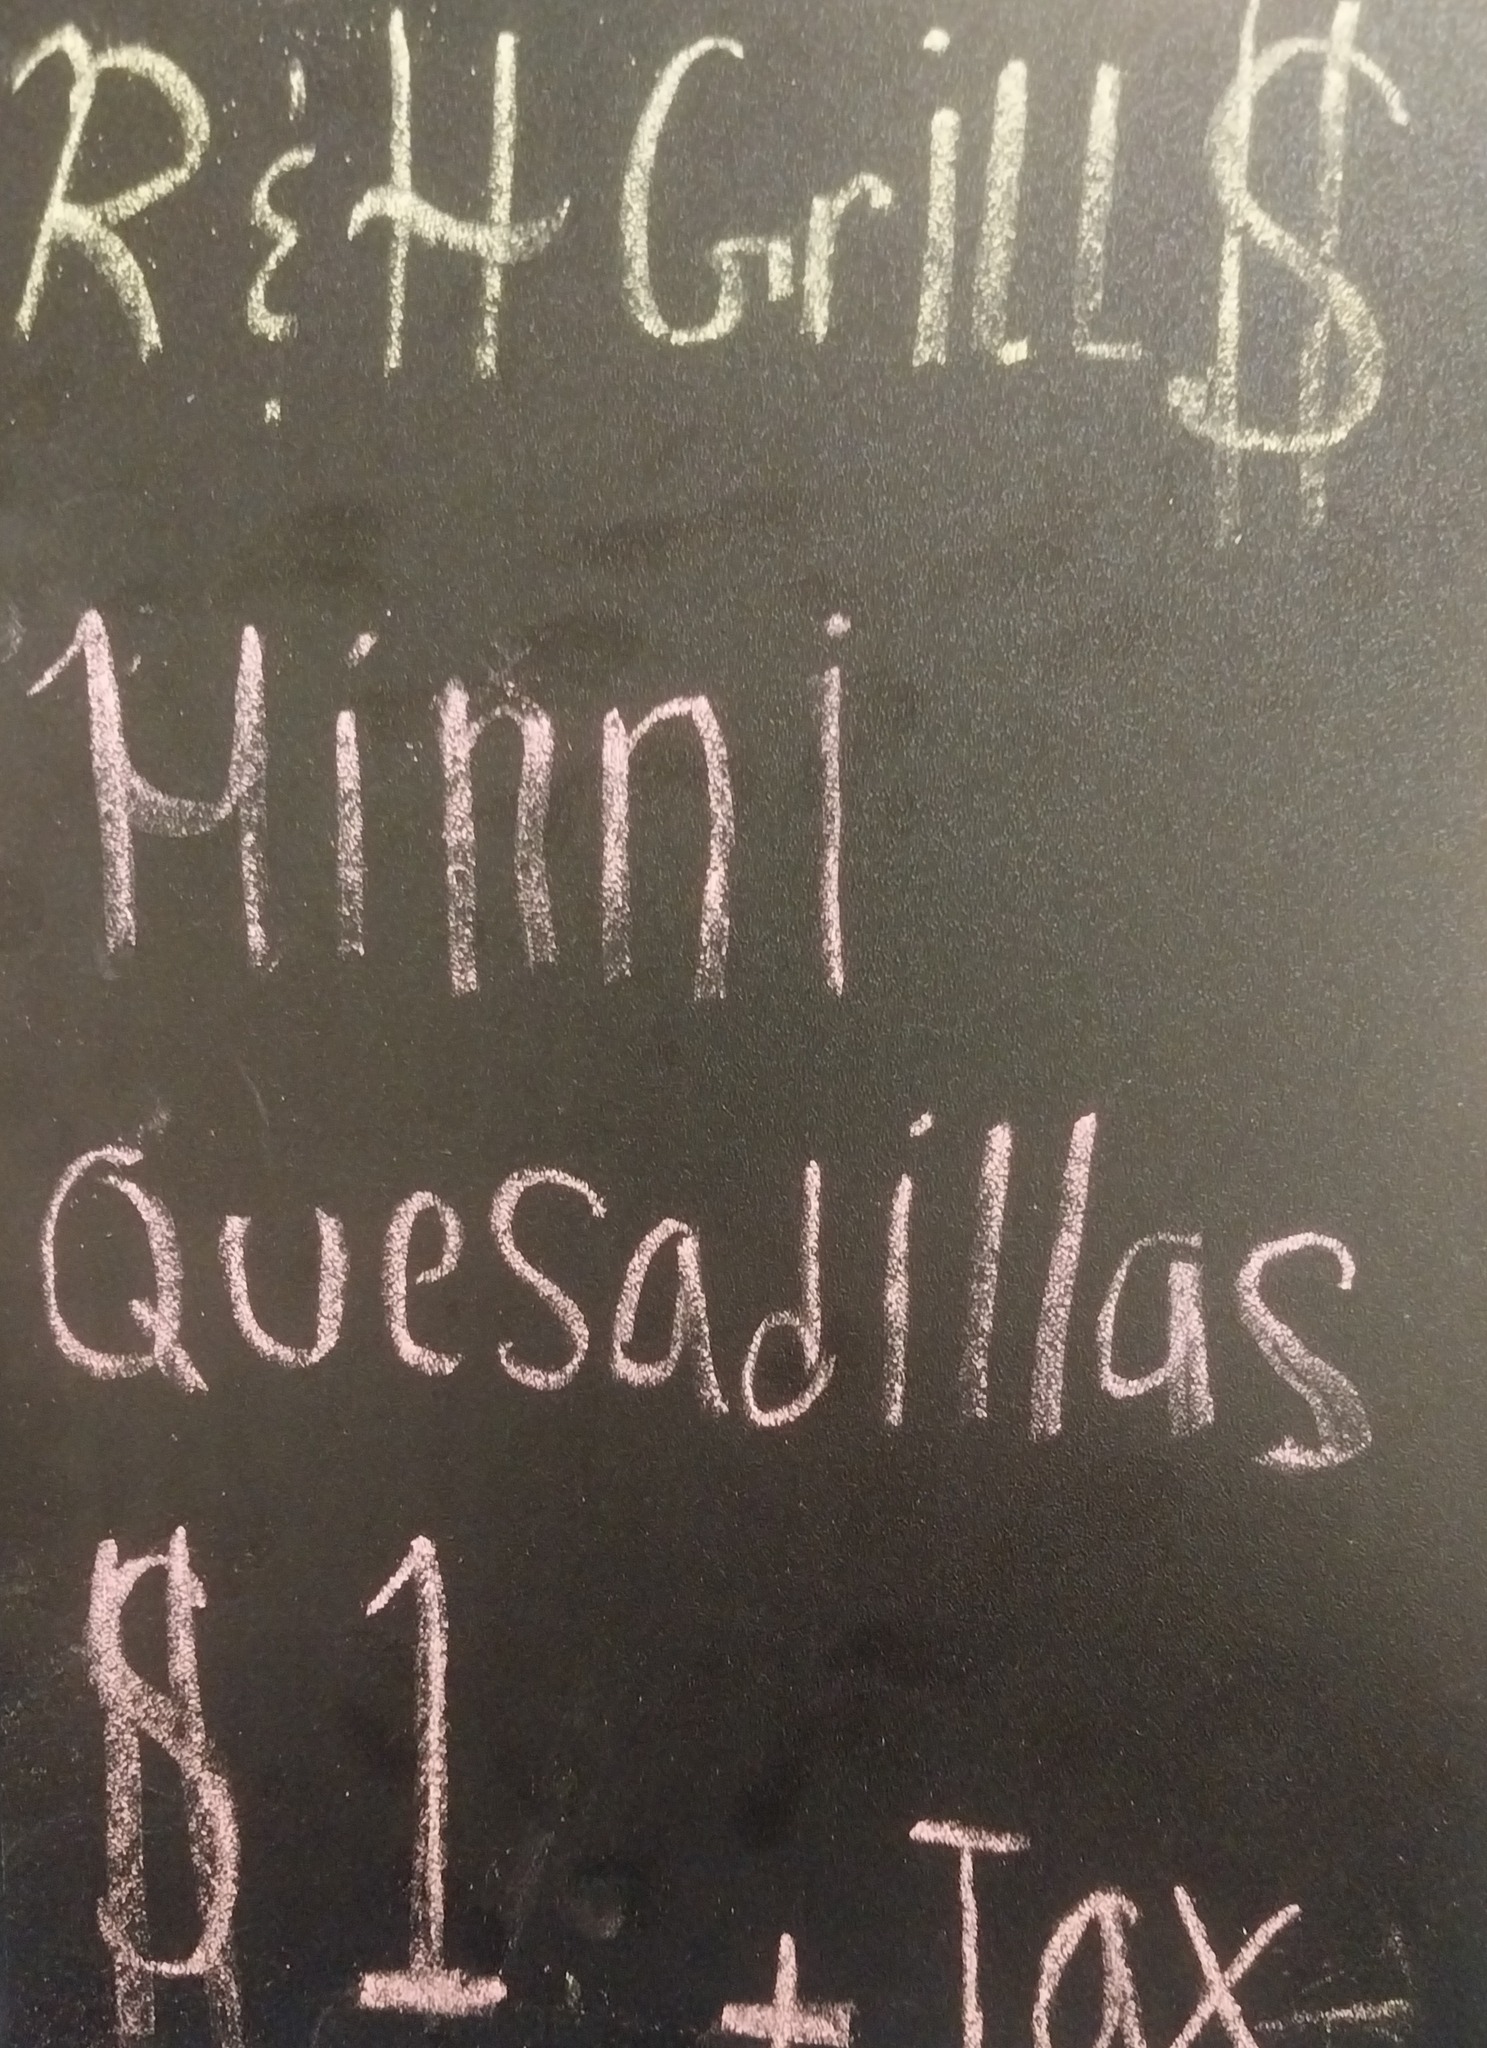 R & H Grill $
Minni
Quesadillas
$ 1 + Tax